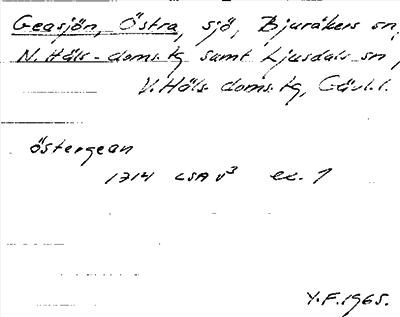 Geasjön, Östra, sjö, Bjuråkers sn,
N. Häls. doms.tg samt Ljusdals sn,
V. Häls. doms.tg, Gävl.l.
östergean
1714 LSA v³ ex. 1
Y.F. 1965.